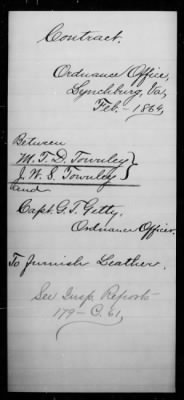 Contract.
Ordnance Office,
Lynchburg, Va,
Feb. - 1864,
Between
M. T. D. Townley }
J. W. S. Townley }
and
Capt. G. T. Getty.
Ordnance Officer.
To Furnish Leather.
See Insp. Report
179 - C. 61,